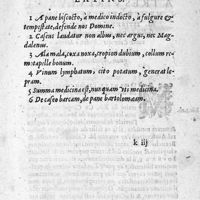 LATINS.
1 A pane biscocto, à medico indocto, à fulgure &
tempestate, defende nos Domine.
2 Caseus laudatur non albus, nec argus, nec Mag
dalenus.
3 Ala mala, coxa noxa, cropios dubium, collum re
mo tapelle bonum.
4 Vinum lymphatum, citò potatum, generat le
pram.
5 Summa medicina est, nunquam vti medicina.
6 De caseo barcam, de pane bartolomaeum.
k iij